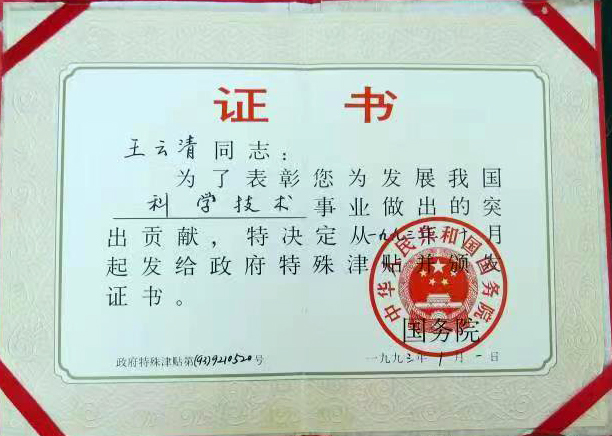 证书
王云清同志：
为了表彰您为发展我国
科学技术事业做出的突
出贡献，特决定从一九九三年十月
起发给政府特殊津贴并颁发
证书。
中华人民共和国国务院
国务院
政府特殊津贴第(93)9210520号
一九九三年1月一日